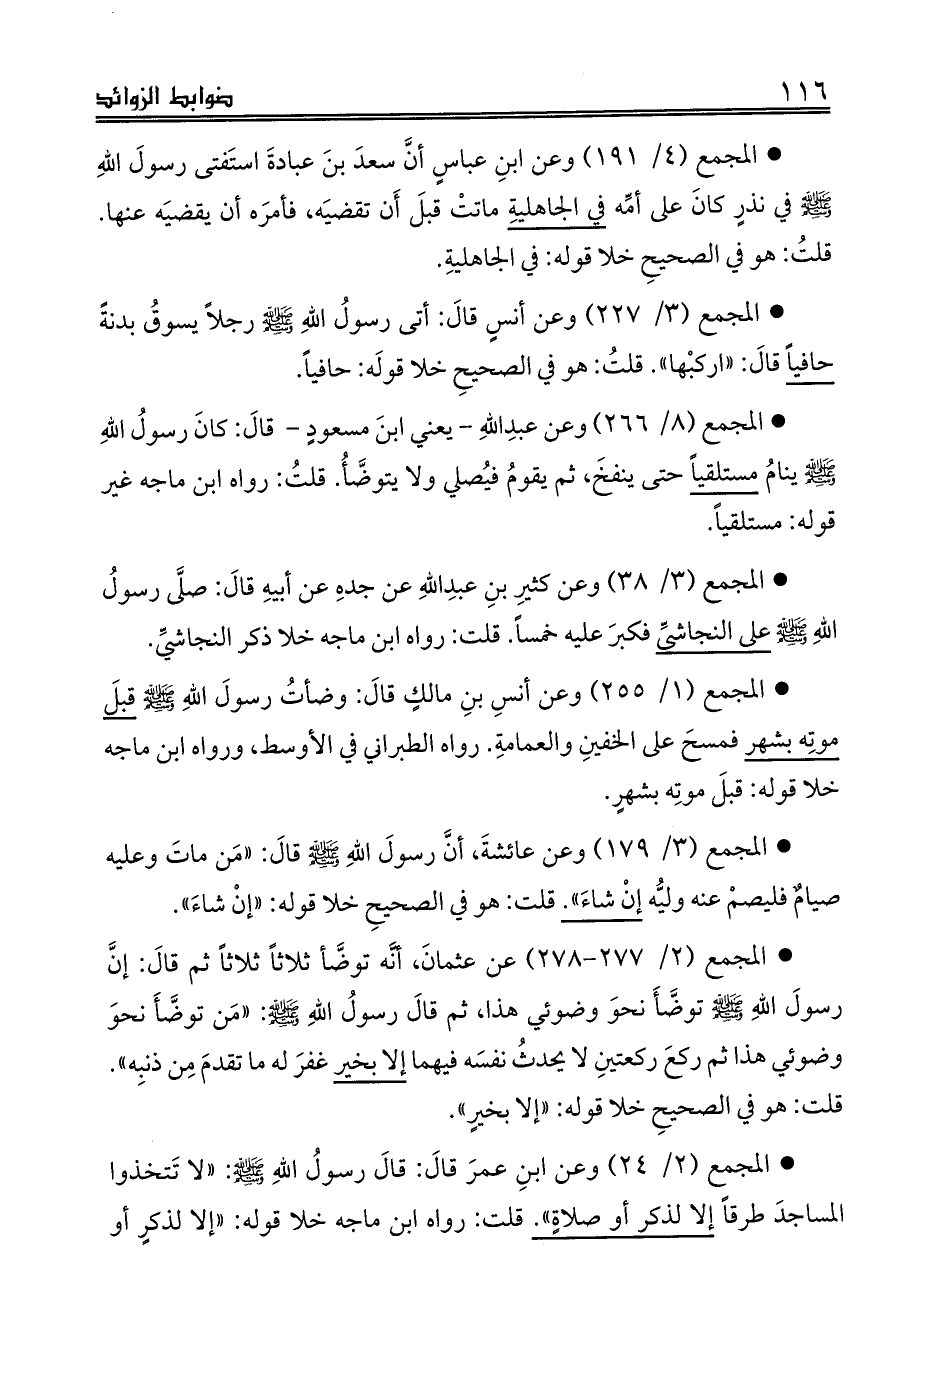 ١١٦
ضوابط الزوائد
● المجمع (٤/ ١٩١) وعن ابنِ عباسٍ أنَّ سعدَ بنَ عبادةَ استَفتى رسولَ اللهِ
ﷺ في نذرٍ كانَ على أمِّه في الجاهليةِ ماتتْ قبلَ أَن تقضيَه، فأمرَه أن يقضيَه عنها.
قلتُ: هو في الصحيحِ خلا قوله: في الجاهليةِ.
● المجمع (٣/ ٢٢٧) وعن أنسٍ قالَ: أتى رسولُ اللهِ ﷺ رجلاً يسوقُ بدنةً
حافياً قالَ: «اركبْها». قلتُ: هو في الصحيحِ خلا قولَه: حافياً.
● المجمع (٨/ ٢٦٦) وعن عبدِاللهِ - يعني ابنَ مسعودٍ - قالَ: كانَ رسولُ اللهِ
ﷺ ينامُ مستلقياً حتى ينفخَ، ثم يقومُ فيُصلي ولا يتوضَّأُ. قلتُ: رواه ابن ماجه غير
قوله: مستلقياً.
● المجمع (٣/ ٣٨) وعن كثيرِ بنِ عبدِاللهِ عن جدهِ عن أبيهِ قالَ: صلَّى رسولُ
اللهِ ﷺ على النجاشيِّ فكبرَ عليه خمساً. قلت: رواه ابن ماجه خلا ذكر النجاشيِّ.
● المجمع (١/ ٢٥٥) وعن أنسِ بنِ مالكٍ قالَ: وضأتُ رسولَ اللهِ ﷺ قبلَ
موتِه بشهرٍ فمسحَ على الخفينِ والعمامةِ. رواه الطبراني في الأوسط، ورواه ابن ماجه
خلا قوله: قبلَ موتِه بشهرٍ.
● المجمع (٣/ ١٧٩) وعن عائشةَ، أنَّ رسولَ اللهِ ﷺ قالَ: «مَن ماتَ وعليه
صيامٌ فليصمْ عنه وليُّه إنْ شاءَ». قلت: هو في الصحيحِ خلا قوله: «إنْ شاءَ».
● المجمع (٢/ ٢٧٧-٢٧٨) عن عثمانَ، أنَّه توضَّأ ثلاثاً ثلاثاً ثم قالَ: إنَّ
رسولَ اللهِ ﷺ توضَّأَ نحوَ وضوئي هذا، ثم قالَ رسولُ اللهِ ﷺ: «مَن توضَّأَ نحوَ
وضوئي هذا ثم ركعَ ركعتينِ لا يحدثُ نفسَه فيهما إلا بخيرٍ غفرَ له ما تقدمَ مِن ذنبِه».
قلت: هو في الصحيحِ خلا قوله: «إلا بخيرٍ».
● المجمع (٢/ ٢٤) وعن ابنِ عمرَ قالَ: قالَ رسولُ اللهِ ﷺ: «لا تَتخذوا
المساجدَ طرقاً إلا لذكرٍ أو صلاةٍ». قلت: رواه ابن ماجه خلا قوله: «إلا لذكرٍ أو